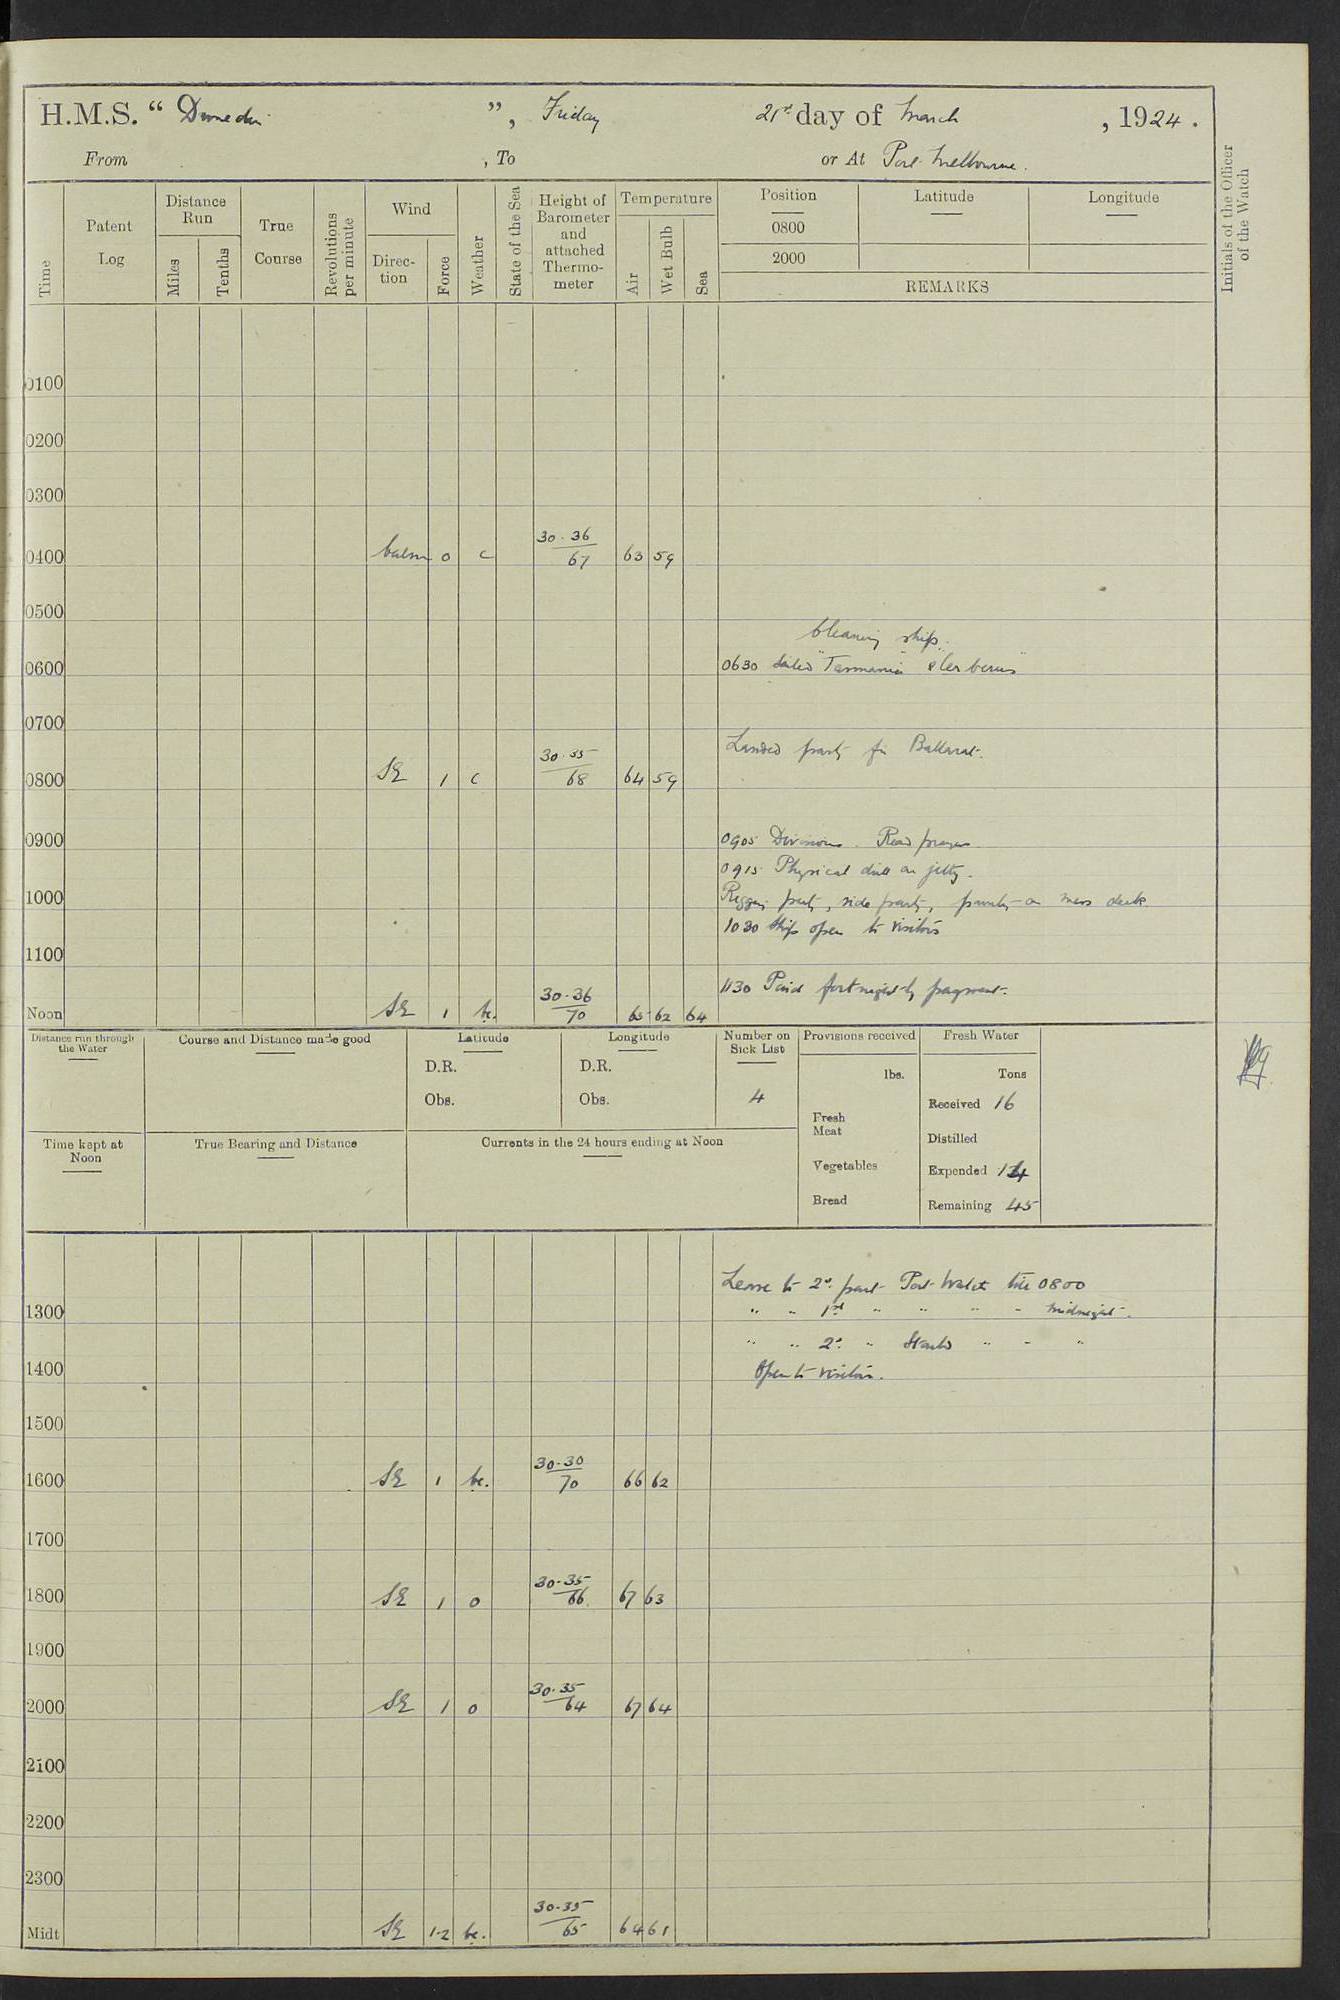 H.M.S. “ Dunedin ”, Friday 21st day of March , 1924 .
From , To or At Port Melbourne.
Time
Patent Log
Distance Run
Miles
Tenths
True Course
Revolutions per minute
Wind
Direc- tion
Force
Weather
State of the Sea
Height of Barometer and attached Thermo- meter
Temperature
Air
Wet Bulb
Sea
Position
0800
2000
Latitude
Longitude
REMARKS
Initials of the Officer of the Watch
0100
0200
0300
0400 Calm 0 c 30.36 67 63 59
0500
Cleaning ship.
0600
0630 Sailed "Tasmania" & Cerberus"
0700
Landed party for Ballarat.
0800 SE 1 c 30.35 68 64 59
0900
0905 Divisions. Read prayers
0915 Physical drill on jetty.
1000
Rigging party, side party, on mess deck.
1030 Ship open to visitors
1100
1130 Paid fortnightly payment.
Noon SE 1 bc. 30.36 70 65 62 64
Distance run through the Water
Course and Distance made good
Latitude
D.R.
Obs.
Longitude
D.R.
Obs.
Number on Sick List
4
Provisions received
lbs.
Fresh Meat
Vegetables
Bread
Fresh Water
Tons
Received 16
Distilled
Expended 14
Remaining 45
Time kept at Noon
True Bearing and Distance
Currents in the 24 hours ending at Noon
Leave to 2nd part Port Watch till 0800
1300 " " 1st " " " " midnight.
" " 2nd " Starbd " " "
1400
Open to visitors.
1500
1600 SE 1 bc. 30.30 70 66 62
1700
1800 SE 1 o 30.35 66 67 63
1900
2000 SE 1 o 30.35 64 67 64
2100
2200
2300
Midt SE 1-2 bc. 30.35 65 64 61